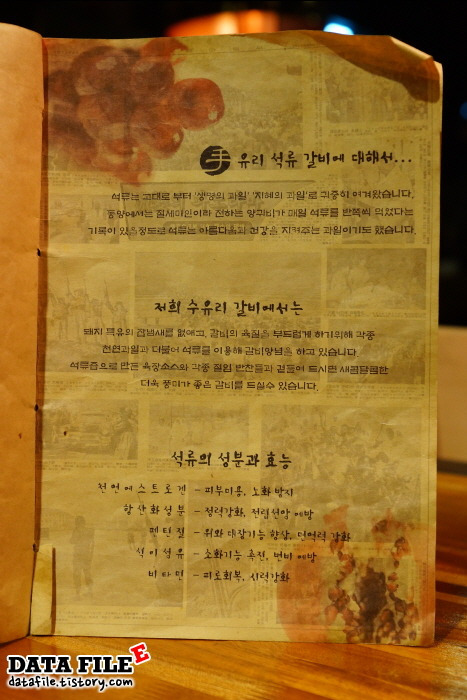 手 유리 석류 갈비에 대해서...
석류는 고대로 부터 '생명의 과일' '지혜의 과일'로 귀중히 여겨왔습니다.
동양에서는 절세미인이라 전하는 양귀비가 매일 석류를 반쪽씩 먹었다는
기록이 있을정도로 석류는 아름다움과 건강을 지켜주는 과일이기도 했습니다.
저희 수유리 갈비에서는
돼지 특유의 잡냄새를 없애고, 갈비의 육질을 부드럽게 하기위해 각종
천연과일과 더불어 석류를 이용해 갈비양념을 하고 있습니다.
석류즙으로 만든 육장소스와 각종 절임 반찬들과 곁들여 드시면 새콤달콤한
더욱 풍미가 좋은 갈비를 드실수 있습니다.
석류의 성분과 효능
천연에스트로겐 - 피부미용, 노화 방지
항산화성분 - 정력강화, 전립선암 예방
펜틴질 - 위와 대장기능 향상, 면역력 강화
식이섬유 - 소화기능 촉진, 변비 예방
비타민 - 피로회복, 시력강화
DATA FILE E
datafile.tistory.com